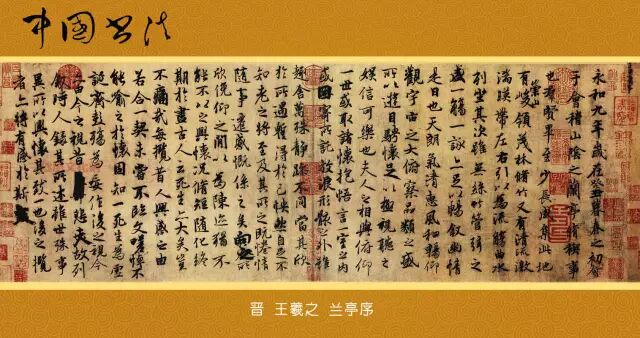 中国书法
永和九年歲在癸丑暮春之初會
于會稽山陰之蘭亭脩稧事
也羣賢畢至少長咸集此地
有崇山峻領茂林脩竹又有清流激
湍暎帶左右引以為流觴曲水
列坐其次雖無絲竹管弦之
盛一觴一詠亦足以暢敘幽情
是日也天朗氣清惠風和暢仰
觀宇宙之大俯察品類之盛
所以遊目騁懷足以極視聽之
娛信可樂也夫人之相與俯仰
一世或取諸懷抱悟言一室之內
或因寄所託放浪形骸之外雖
趣舍萬殊靜躁不同當其欣
於所遇蹔得於己怏然自足不
知老之將至及其所之既惓情
隨事遷感慨係之矣向之所
欣俛仰之閒以為陳迹猶不
能不以之興懷況脩短隨化終
期於盡古人云死生亦大矣豈
不痛哉每攬昔人興感之由
若合一契未嘗不臨文嗟悼不
能喻之於懷固知一死生為虛
誕齊彭殤為妄作後之視今
亦由今之視昔悲夫故列
敘時人錄其所述雖世殊事
異所以興懷其致一也後之攬
者亦將有感於斯
晋 王羲之 兰亭序